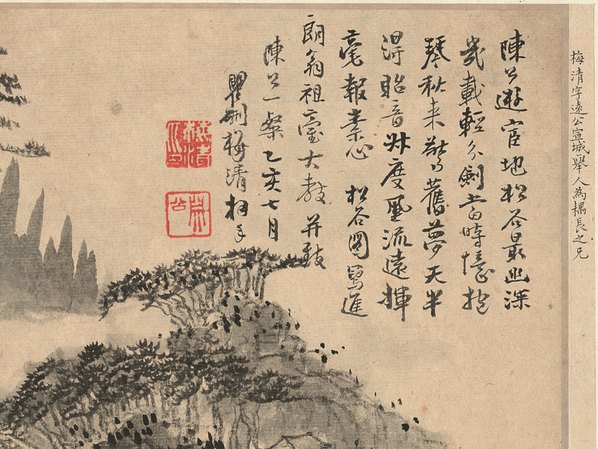 梅清字遠公宣城舉人為耦長之兄
陳公遊宦地松谷最幽深
幾載輕分劍當時憶抱
琴秋來驚舊夢天半
得貽音叔度風流遠揮
毫報素心 松谷圖寫進
朗翁祖臺大教並致
陳公一粲 乙亥七月
瞿硎梅清拜手